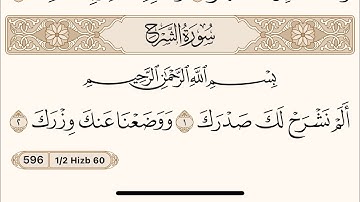 سُورَةُ الشَّرْحِ
بِسْمِ اللَّهِ الرَّحْمَٰنِ الرَّحِيمِ
أَلَمْ نَشْرَحْ لَكَ صَدْرَكَ ١ وَوَضَعْنَا عَنكَ وِزْرَكَ ٢
596 1/2 Hizb 60